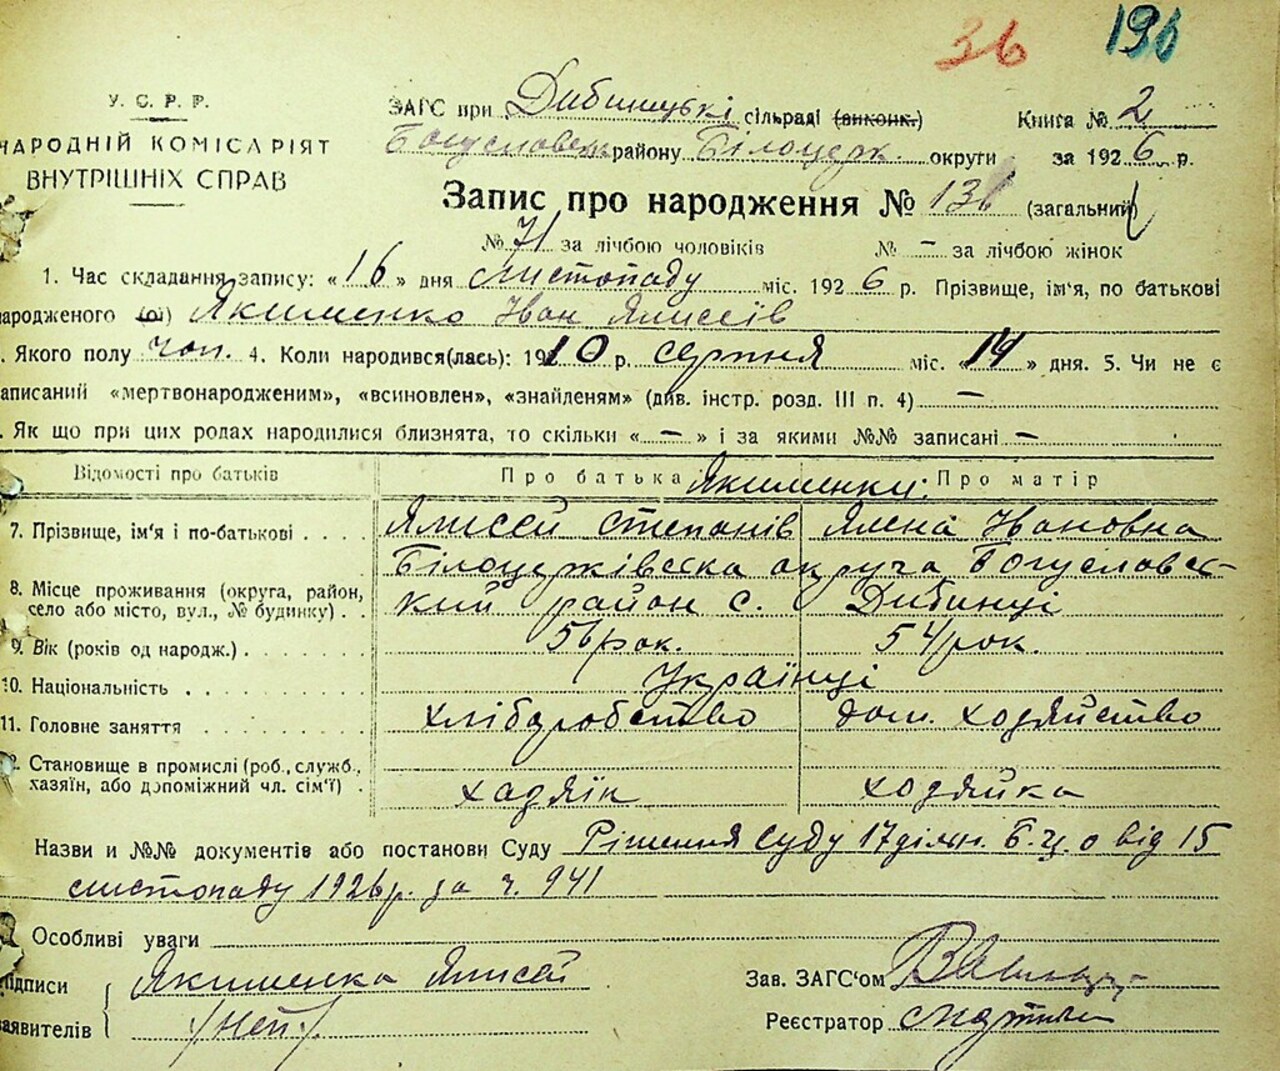 36 196
У. С. Р. Р.
НАРОДНІЙ КОМІСАРІЯТ
ВНУТРІШНІХ СПРАВ
ЗАГС при Дибинцькі сільраді (виконк.) Книга № 2
Богуславськ. району Білоцерк. округи за 1926 р.
Запис про народження № 136 (загальний)
№ 71 за лічбою чоловіків № – за лічбою жінок
1. Час складання запису: «16» дня листопаду міс. 1926 р. Прізвище, ім'я, по батькові
народженого (ої) Якименко Іван Ялисеїв
. Якого полу чол. 4. Коли народився(лась): 1910 р. серпня міс. «14» дня. 5. Чи не є
записаний «мертвонародженим», «всиновлен», «знайденям» (див. інстр. розд. III п. 4) —
. Як що при цих родах народилися близнята, то скільки «—» і за якими №№ записані —
Відомості про батьків Про батька Якименки: Про матір
7. Прізвище, ім'я і по-батькові . . . . Ялисей Степанів Ялена Івановна
Білоцерківська округа Богуславсь-
8. Місце проживання (округа, район, село або місто, вул., № будинку) . . кий район с. Дибинці
9. Вік (років од народж.) . . . . . . . 56 рок. 54 рок.
10. Національність . . . . . . . . . . Українці
11. Головне заняття . . . . . . . . . хліборобство дом. хозяйство
2. Становище в промислі (роб., служб., хазяїн, або допоміжний чл. сім'ї) . хазяїн хозяйка
Назви и №№ документів або постанови Суду Рішення Суду 17 дільн. Б.Ц.О від 15
листопаду 1926 р. за ч. 941
Особливі уваги
підписи Якименка Ялисей Зав. ЗАГС'ом
заявителів /неп./ Реєстратор